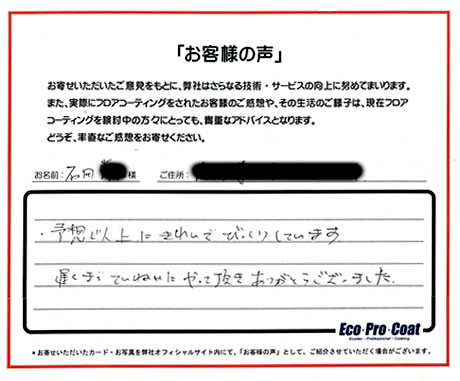 「お客様の声」
お寄せいただいたご意見をもとに、弊社はさらなる技術・サービスの向上に努めてまいります。
また、実際にフロアコーティングをされたお客様のご感想や、その生活のご様子は、現在フロア
コーティングを検討中の方々にとっても、貴重なアドバイスとなります。
どうぞ、率直なご感想をお寄せください。
お名前: 石岡 様 ご住所:
・予想以上にきれいでびっくりしています。
遅くまでていねいにやって頂きありがとうございました。
Eco・Pro・Coat
Ecolex・Professional・Coating
*お寄せいただいたカード・お写真を弊社オフィシャルサイト内にて、「お客様の声」として、ご紹介させていただく場合がございます。